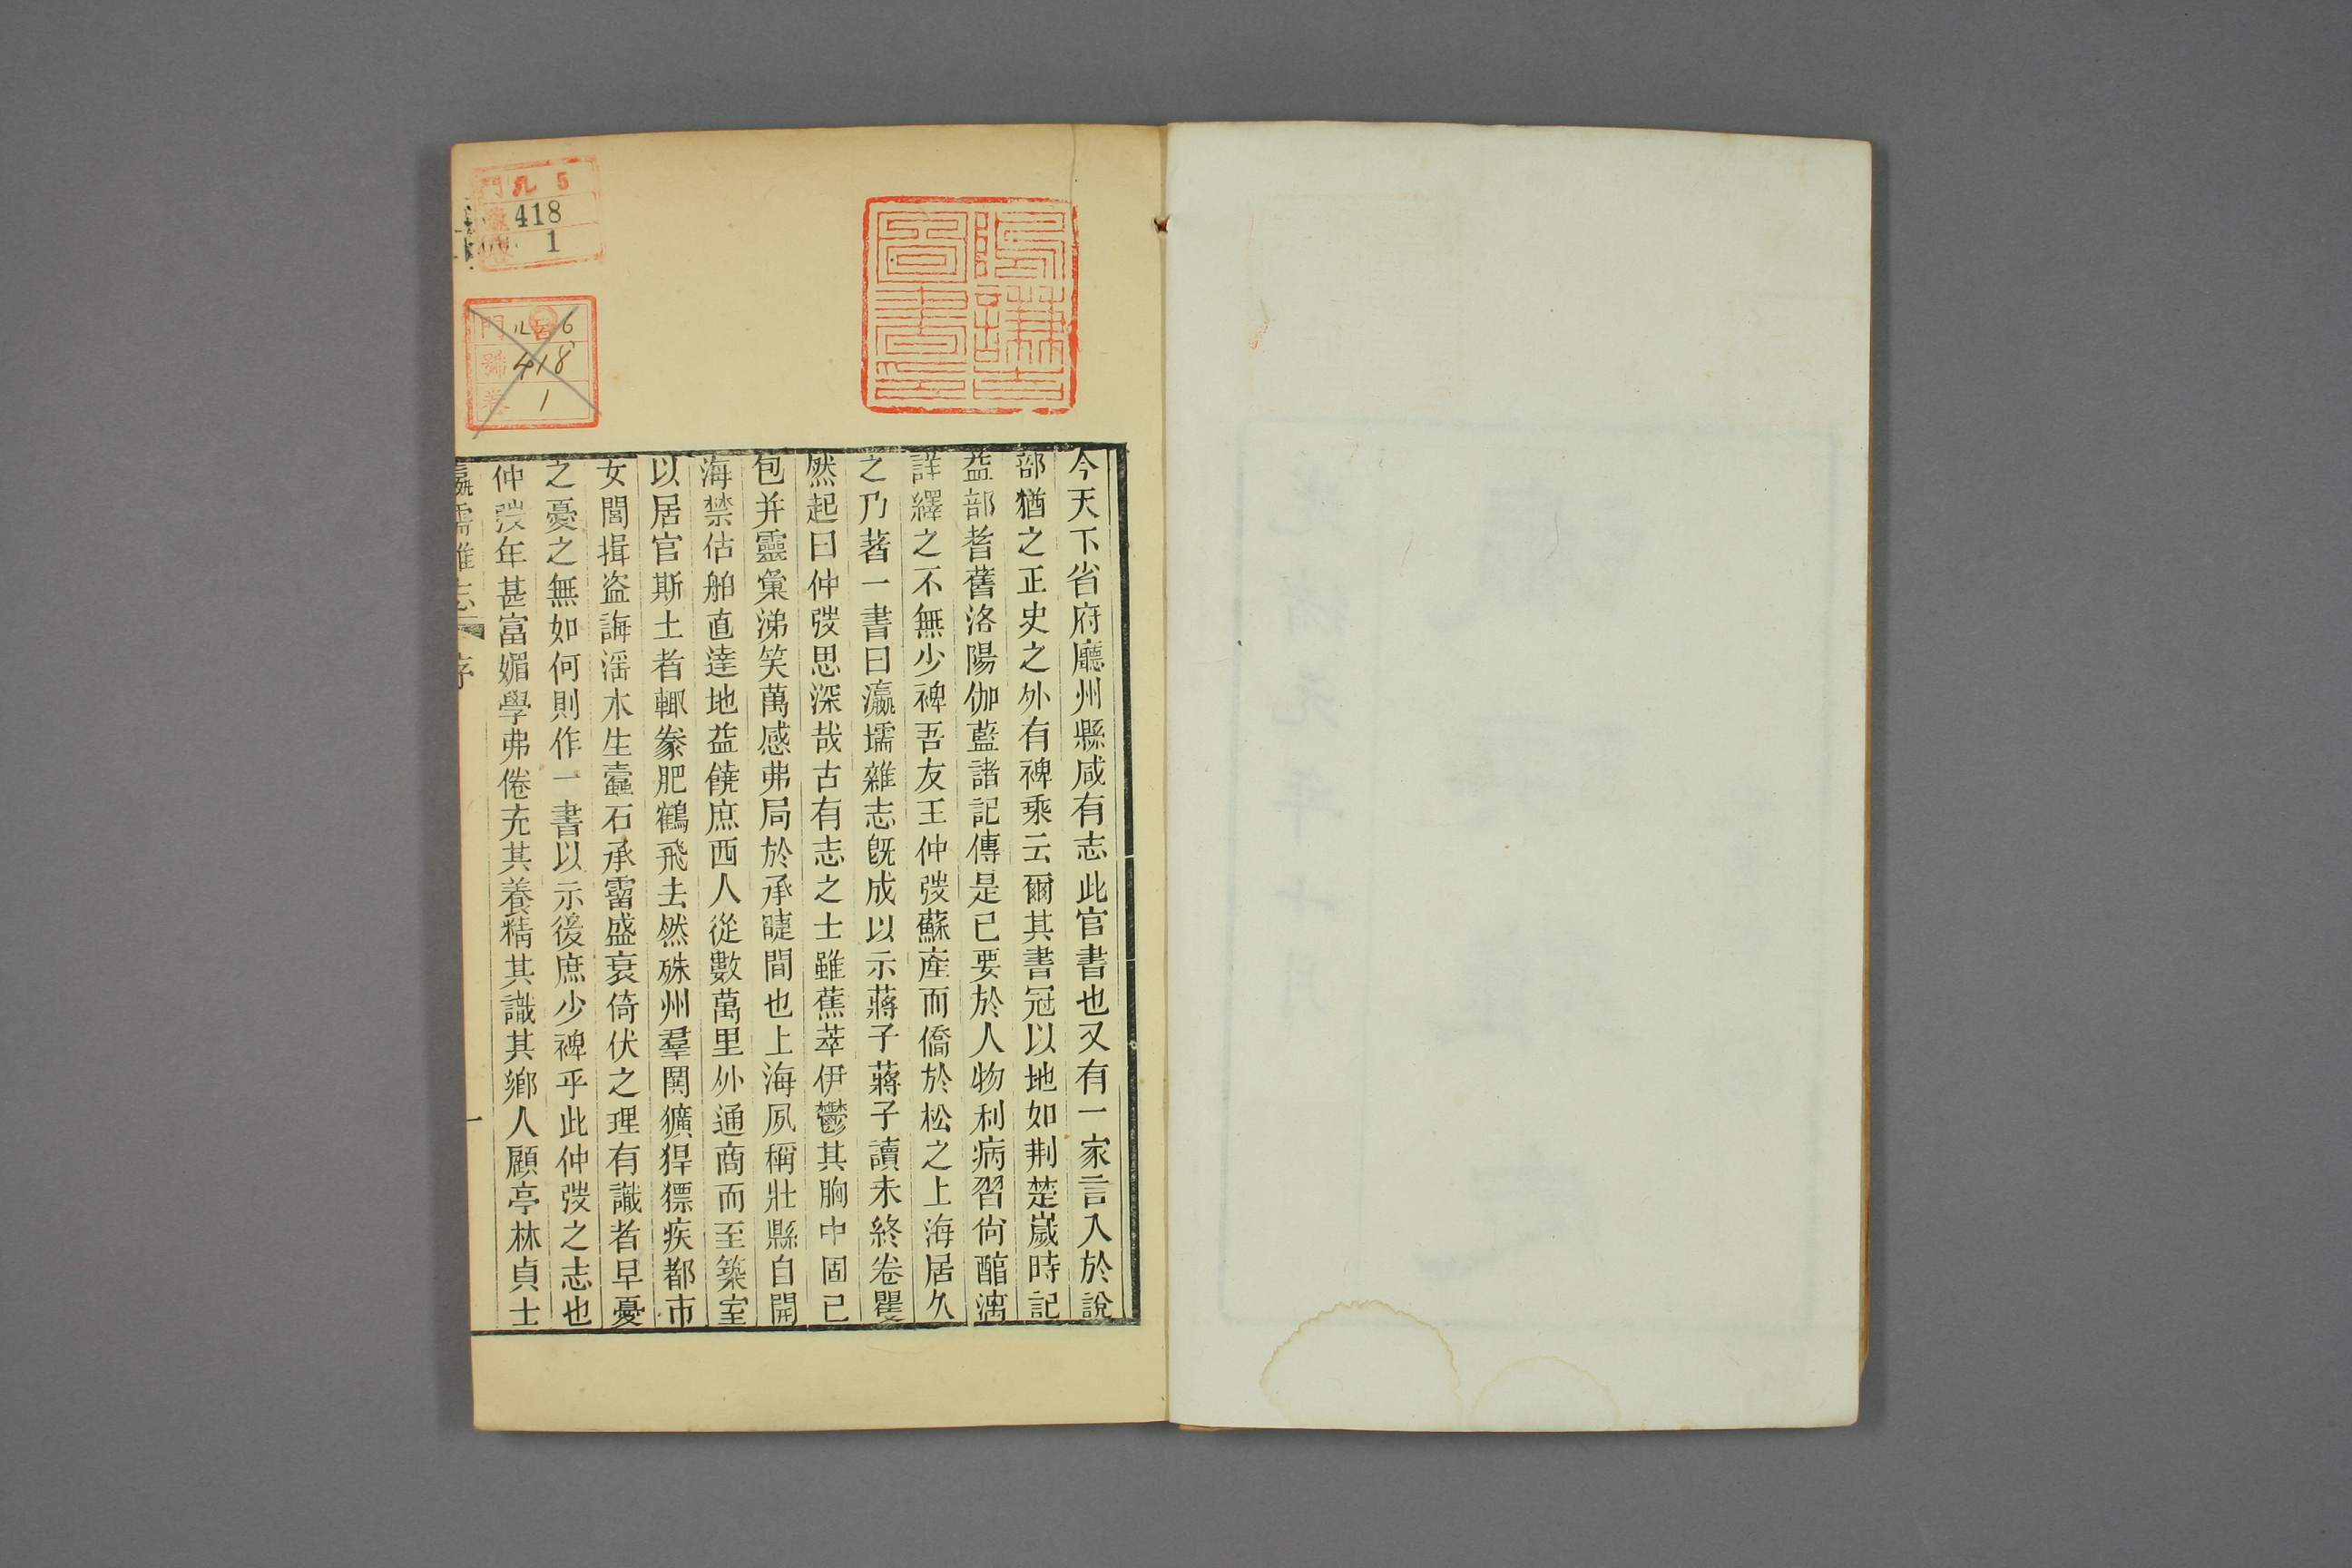 今天下省府廳州縣咸有志此官書也又有一家言入於說
部猶之正史之外有裨乘云爾其書冠以地如荆楚歲時記
益部耆舊洛陽伽藍諸記傳是已要於人物利病習尙醕漓
詳繹之不無少裨吾友王仲弢蘇產而僑於松之上海居久
之乃著一書曰瀛壖雜志旣成以示蔣子蔣子讀未終卷瞿
然起曰仲弢思深哉古有志之士雖蕉萃伊鬱其胸中固已
包并靈彙涕笑萬感弗局於承睫間也上海夙稱壯縣自開
海禁估舶直達地益饒庶西人從數萬里外通商而至築室
以居官斯土者輙豢肥鶴飛去然硃州羣閧獷猂獷疾都市
女閭揖盜誨滛木生蠧石承霤盛衰倚伏之理有識者早憂
之憂之無如何則作一書以示後庶少裨乎此仲弢之志也
仲弢年甚富媚學弗倦充其養精其識其鄉人顧亭林貞士
瀛壖雜志 序 一
門 ル 5
號 418
卷 1
門 ル 6
號 418
卷 1